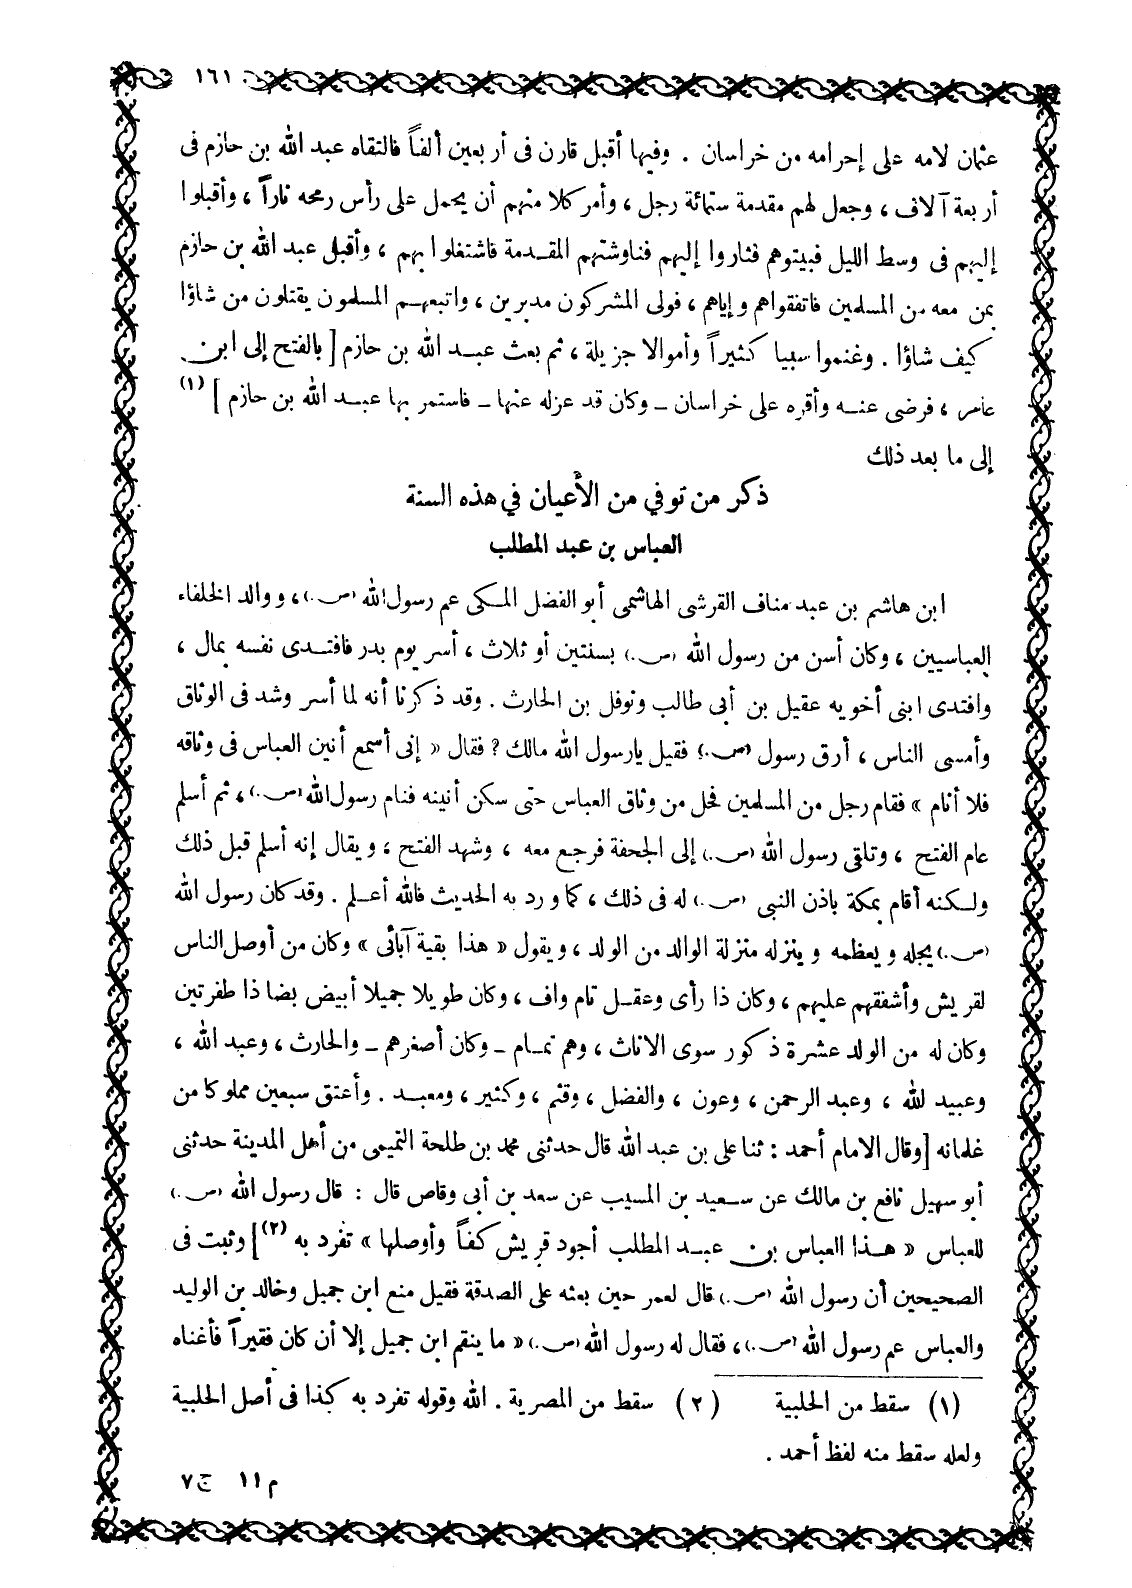 ١٦١
عثمان لامه على إحرامه من خراسان . وفيها أقبل قارن فى أربعين ألفاً فالتقاه عبد الله بن حازم فى
أربعة آلاف ، وجعل لهم مقدمة ستمائة رجل ، وأمر كلا منهم أن يحمل على رأس رمحه ناراً ، وأقبلوا
إليهم فى وسط الليل فبيتوهم فثاروا إليهم فناوشتهم المقدمة فاشتغلوا بهم ، وأقبل عبد الله بن حازم
بمن معه من المسلمين فاتفقواهم وإياهم ، فولى المشركون مدبرين ، واتبعهم المسلمون يقتلون من شاؤا
كيف شاؤا . وغنموا سبيا كثيراً وأموالا جزيلة ، ثم بعث عبد الله بن حازم [ بالفتح إلى ابن
عامر ، فرضى عنه وأقره على خراسان ــ وكان قد عزله عنها ــ فاستمر بها عبد الله بن حازم ] (١)
إلى ما بعد ذلك
ذكر من توفي من الأعيان في هذه السنة
العباس بن عبد المطلب
ابن هاشم بن عبد مناف القرشى الهاشمى أبو الفضل المكى عم رسول الله (ص.) ، ووالد الخلفاء
العباسيين ، وكان أسن من رسول الله (ص.) بسنتين أو ثلاث ، أسر يوم بدر فافتدى نفسه بمال ،
وافتدى ابنى أخويه عقيل بن أبى طالب ونوفل بن الحارث . وقد ذكرنا أنه لما أسر وشد فى الوثاق
وأمسى الناس ، أرق رسول (ص.) فقيل يارسول الله مالك ? فقال « إنى أسمع أنين العباس فى وثاقه
فلا أنام » فقام رجل من المسلمين فحل من وثاق العباس حتى سكن أنينه فنام رسول الله (ص.) ، ثم أسلم
عام الفتح ، وتلقى رسول الله (ص.) إلى الجحفة فرجع معه ، وشهد الفتح ، ويقال إنه أسلم قبل ذلك
ولكنه أقام بمكة باذن النبى (ص.) له فى ذلك ، كما ورد به الحديث فالله أعلم . وقد كان رسول الله
(ص.) يجله ويعظمه وينزله منزلة الوالد من الولد ، ويقول « هذا بقية آبائى » وكان من أوصل الناس
لقريش وأشفقهم عليهم ، وكان ذا رأى وعقل تام واف ، وكان طويلا جميلا أبيض بضا ذا طفرتين
وكان له من الولد عشرة ذكور سوى الاناث ، وهم تمام ــ وكان أصغرهم ــ والحارث ، وعبد الله ،
وعبيد لله ، وعبد الرحمن ، وعون ، والفضل ، وقثم ، وكثير ، ومعبد . وأعتق سبعين مملوكا من
غلمانه [ وقال الامام أحمد : ثنا على بن عبد الله قال حدثنى محمد بن طلحة التميمى من أهل المدينة حدثنى
أبو سهيل نافع بن مالك عن سعيد بن المسيب عن سعد بن أبى وقاص قال : قال رسول الله (ص.)
للعباس « هذا العباس بن عبد المطلب أجود قريش كفاً وأوصلها » تفرد به (٢) ] وثبت فى
الصحيحين أن رسول الله (ص.) قال لعمر حين بعثه على الصدقة فقيل منع ابن جميل وخالد بن الوليد
والعباس عم رسول الله (ص.) ، فقال له رسول الله (ص.) « ما ينقم ابن جميل إلا أن كان فقيراً فأغناه
(١) سقط من الحلبية (٢) سقط من المصرية . الله وقوله تفرد به كذا فى أصل الحلبية
ولعله سقط منه لفظ أحمد .
م ١١ ج ٧